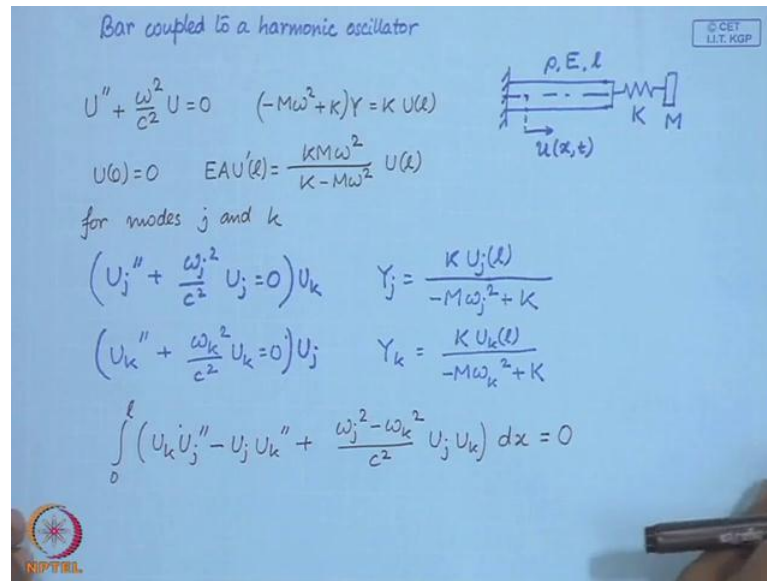 Bar coupled to a harmonic oscillator
© CET
I.I.T. KGP
ρ, E, l
K M
u(x,t)
U'' + ω²/c² U = 0    (-Mω² + K)Y = K U(l)
U(0) = 0    EAU'(l) = KMω²/(K - Mω²) U(l)
for modes j and k
(U_j'' + ω_j²/c² U_j = 0)U_k    Y_j = K U_j(l)/(-Mω_j² + K)
(U_k'' + ω_k²/c² U_k = 0)U_j    Y_k = K U_k(l)/(-Mω_k² + K)
∫₀^l (U_k U_j'' - U_j U_k'' + (ω_j² - ω_k²)/c² U_j U_k) dx = 0
NPTEL